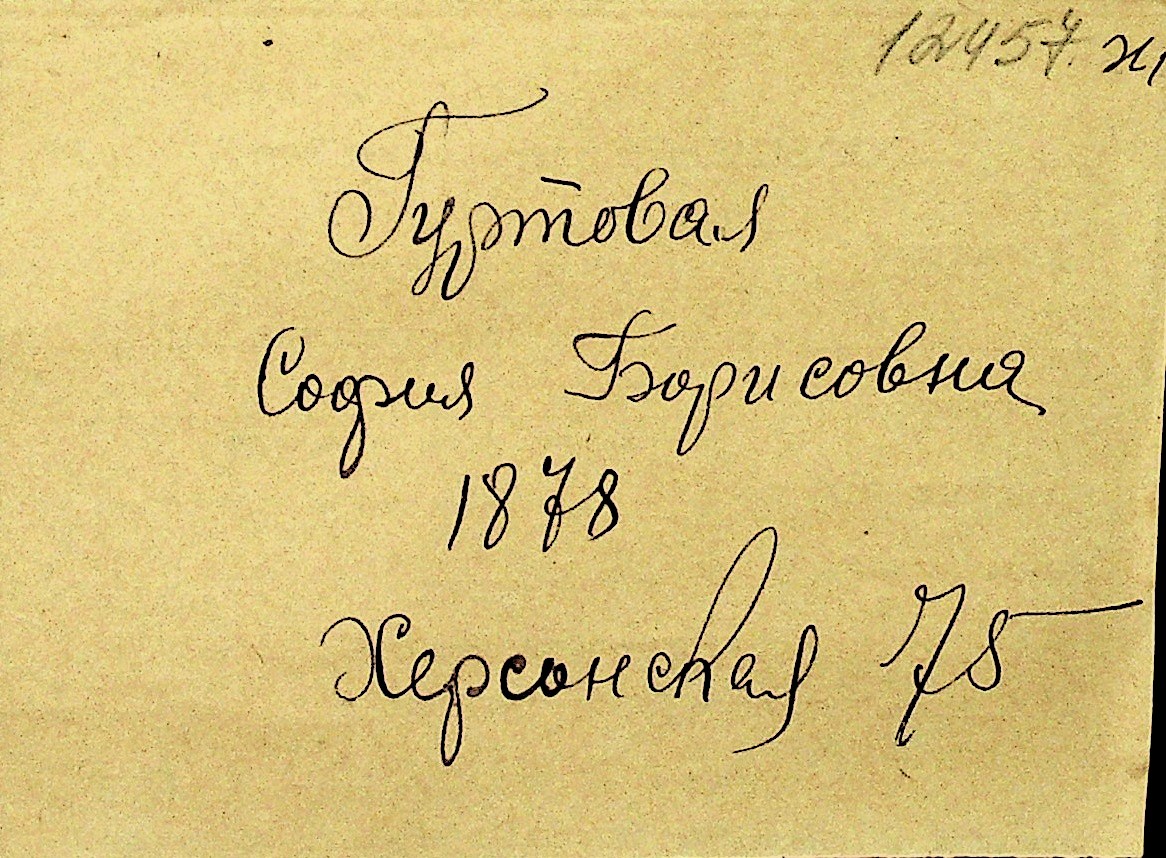 12457. н,
Гуртовая
София Борисовна
1878
Херсонская 75